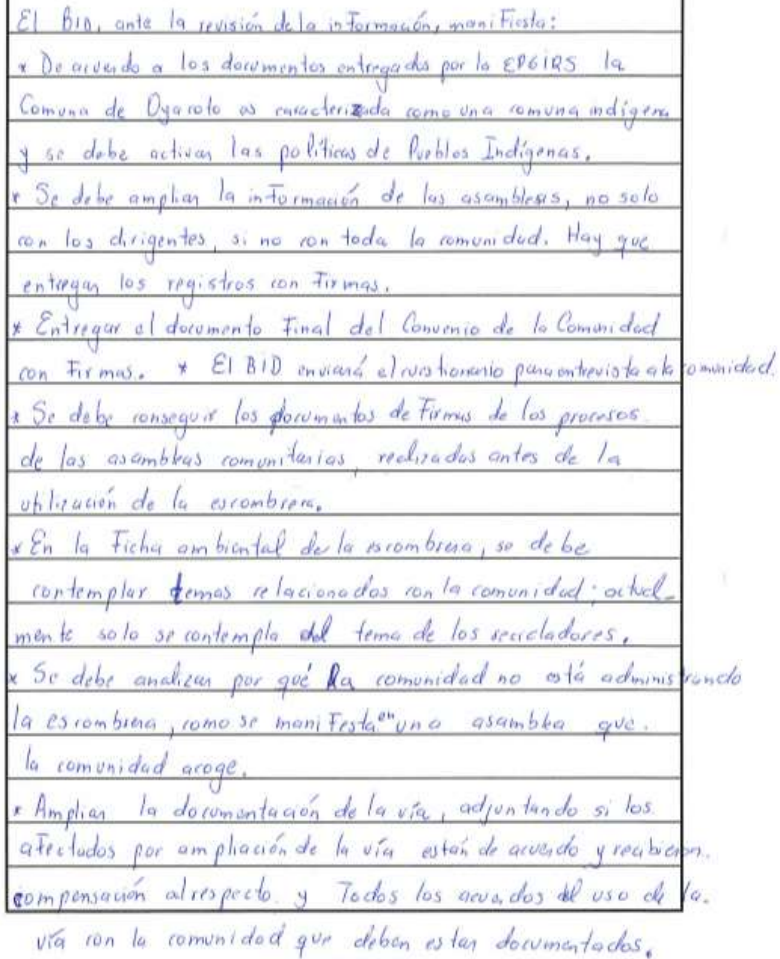 El BID, ante la revisión de la información, manifiesta:
* De acuerdo a los documentos entregados por la EPGIRS la
Comuna de Oyacoto es caracterizada como una comuna indígena
y se debe activar las políticas de Pueblos Indígenas.
* Se debe ampliar la información de las asambleas, no solo
con los dirigentes, si no con toda la comunidad. Hay que
entregar los registros con firmas.
* Entregar el documento Final del Convenio de la Comunidad
con Firmas. * El BID enviará el cuestionario para entrevista a la comunidad.
* Se debe conseguir los documentos de Firmas de los procesos
de las asambleas comunitarias, realizadas antes de la
utilización de la escombrera.
* En la Ficha ambiental de la escombrera, se debe
contemplar temas relacionados con la comunidad; actual-
mente solo se contempla del tema de los recicladores.
* Se debe analizar por qué la comunidad no está administrando
la escombrera, como se manifesta en una asamblea que
la comunidad acoge.
* Ampliar la documentación de la vía, adjuntando si los
afectados por ampliación de la vía están de acuerdo y recibieron
compensación al respecto. y Todos los acuerdos del uso de la
vía con la comunidad que deben estar documentados.